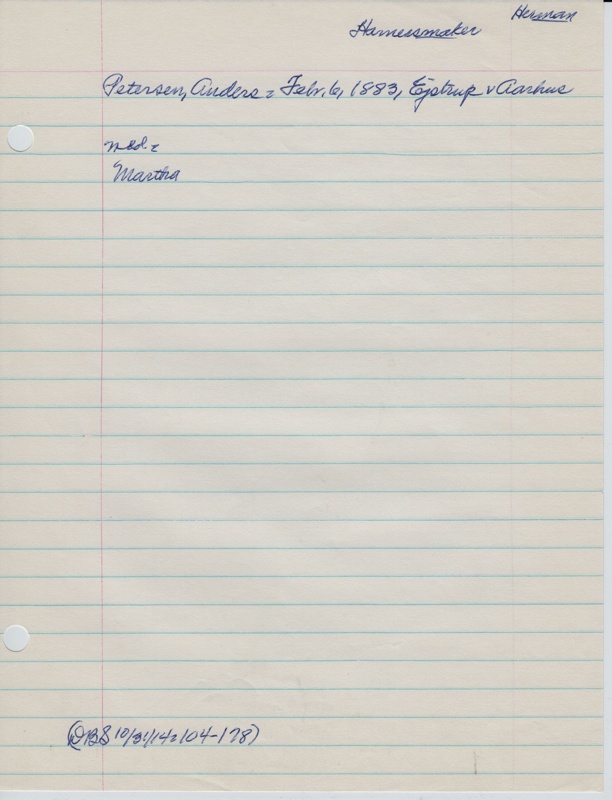 Herman
Harnessmaker
Petersen, Anders = Febr. 6, 1883, Ejstrup v Aarhus
md =
Martha
(DBS 10/31/14 = 104-178)